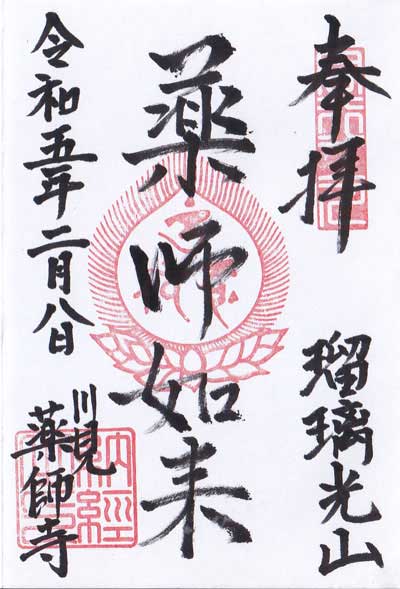 奉拝
瑠璃光山
薬師如来
令和五年二月八日
川見
薬師寺
納経